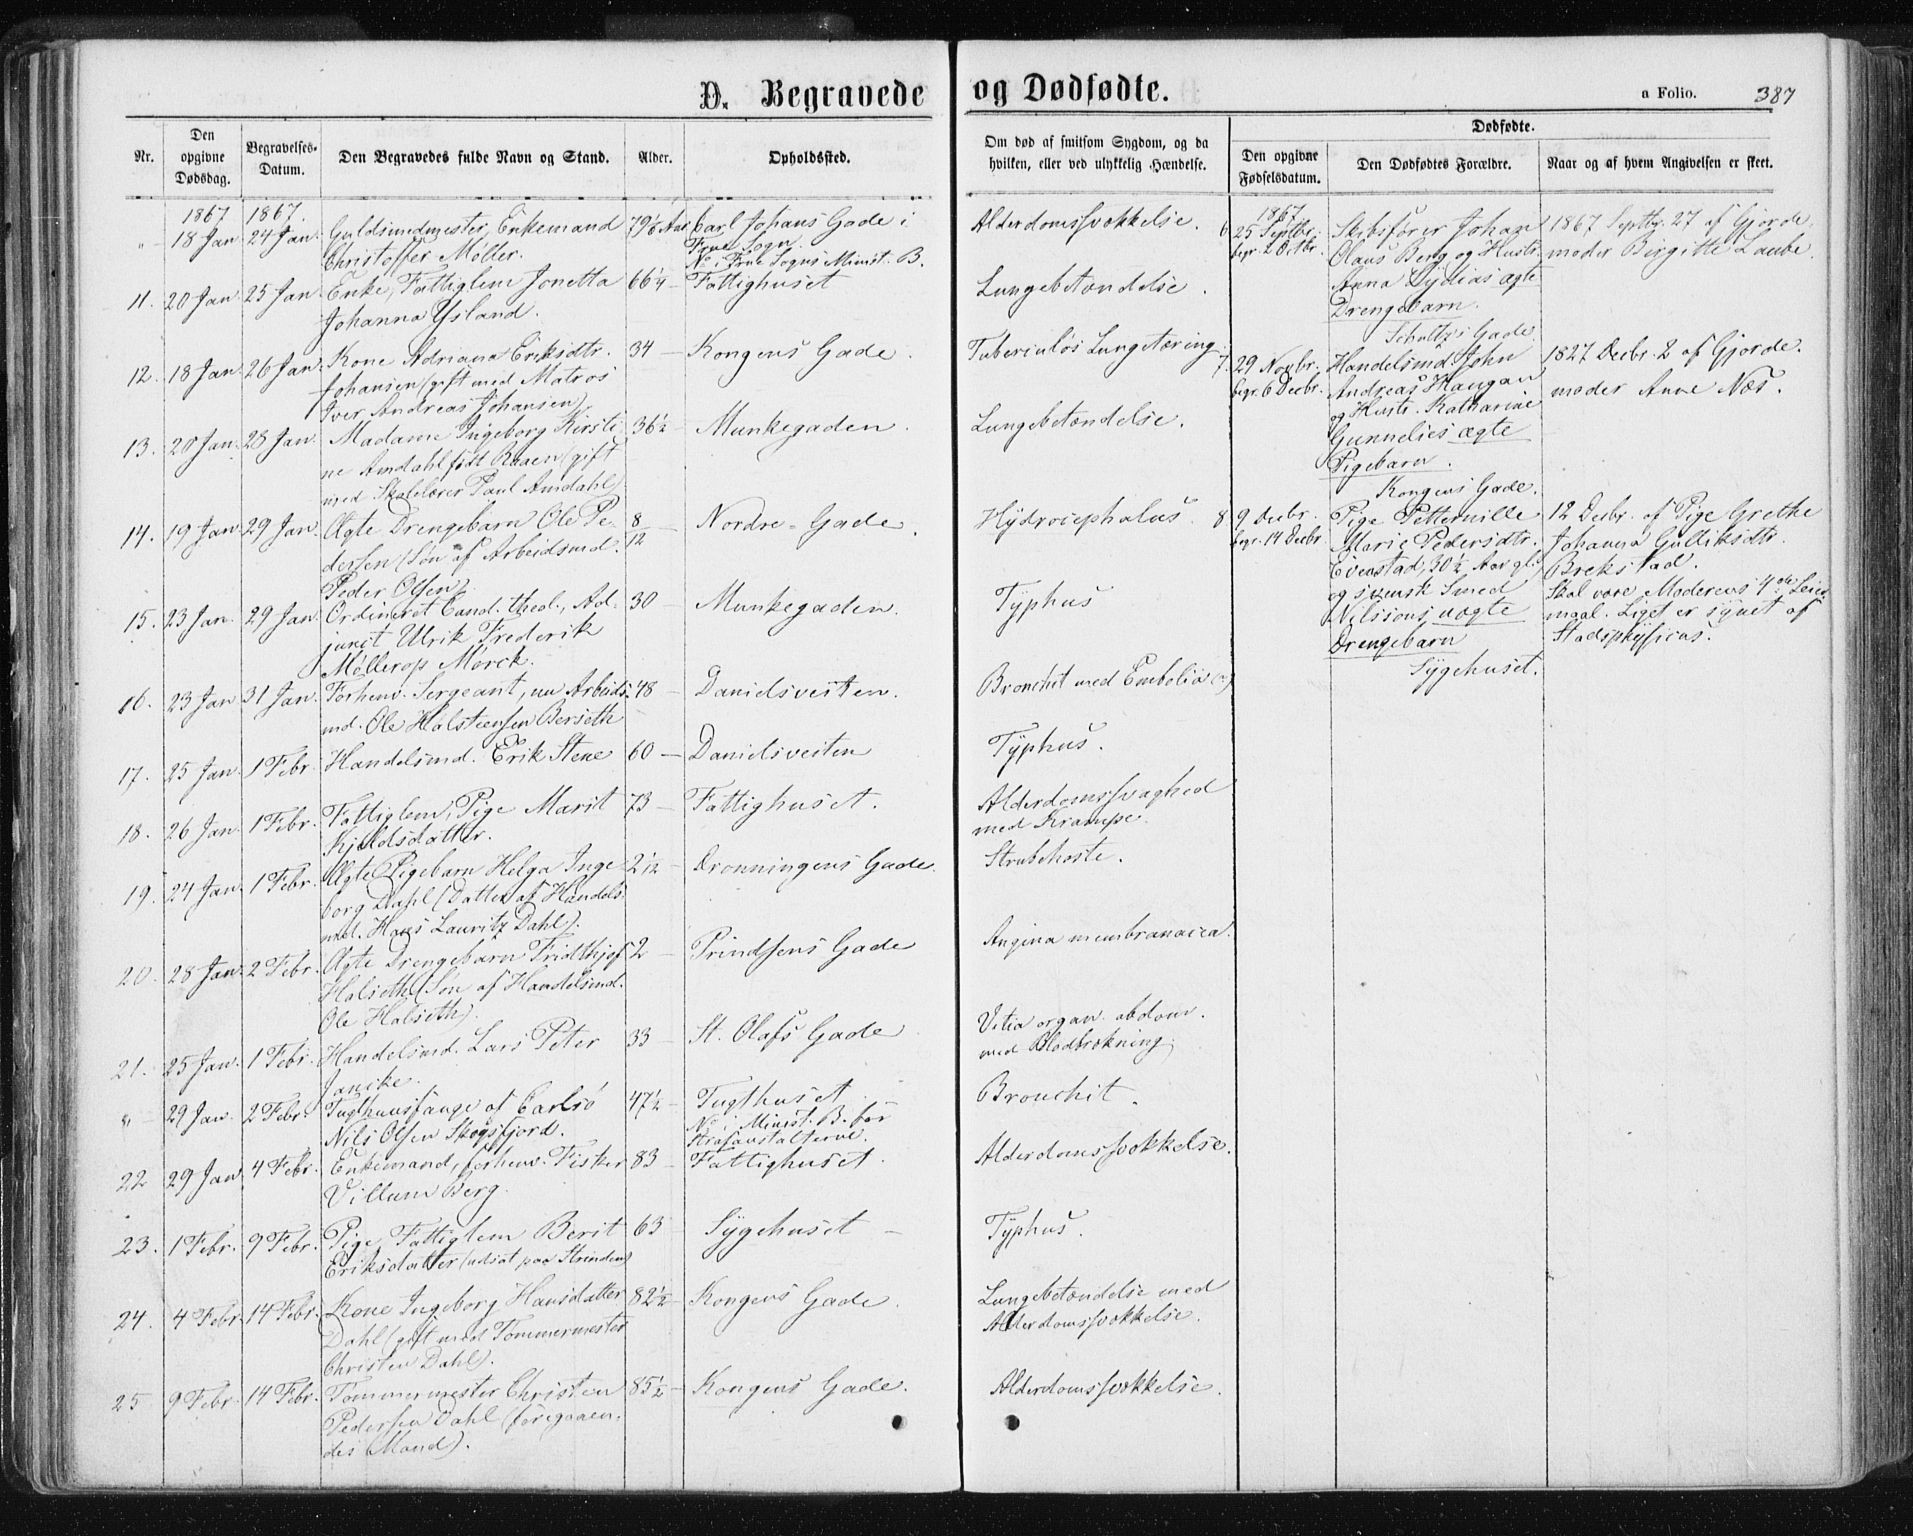 D. Begravede og Dødfødte.
a Folio. 387
Nr.
Den opgivne Dødsdag.
Begravelses-Datum.
Den Begravedes fulde Navn og Stand.
Alder.
Opholdssted.
Om død af smitsom Sygdom, og da hvilken, eller ved ulykkelig Hændelse.
Dødfødte.
Den opgivne Fødselsdatum.
Den Dødfødtes Forældre.
Naar og af hvem Angivelsen er skeet.
1867 1867.
"- 18 Jan 24 Jan. Guldsmedmester, Enkemand 79 Aar Carl Johans Gade i Alderdomssvækkelse.
Christoffer Møller. Frue Sogn.
No i Frue Sogns Minist. B.
11. 20 Jan 25 Jan. Enke, Fattiglem Jonetta 66 - Fattighuset Lungebetændelse.
Johanna Ysland.
12. 18 Jan 26 Jan. Kone Adriana Eriksdtr. 34 - Kongens Gade. Tuberculøs Lungetæring.
Johansen (gift med Matros
Iver Andreas Johansen)
13. 20 Jan. 28 Jan. Madame Ingeborg Kirsti- 36½ - Munkegaden. Lungebetændelse.
ne Amdahl født Raaen (gift
med Skolelærer Paul Amdahl)
14. 19 Jan 29 Jan. Ægte Drengebarn Ole Pe- 8/12 - Nordre-Gade. Hydrocephalus.
dersen (Søn af Arbeidsmd.
Peder Olsen).
15. 23 Jan. 29 Jan. Ordineret Cand. theol., Ad- 30 - Munkegaden. Typhus
junct Ulrik Frederik
Møllerop Mørck.
16. 23 Jan 31 Jan. Forhenv. Sergeant, nu Arbeids- 48 - Danielsveiten. Bronchit med Embolia
md. Ole Halsteensen Berseth
17. 25 Jan. 1 Febr. Handelsmd. Erik Stene 60 - Danielsveiten Typhus.
18. 26 Jan. 1 Febr. Fattiglem, Pige Marit 73 - Fattighuset. Alderdomssvaghed
Kjeldsdatter. med Krampe.
19. 24 Jan. 1 Febr. Ægte Pigebarn Helga Inge- 2 - Dronningens Gade. Strubehoste.
borg Dahl (Datter af Handels-
md. Hans Lauritz Dahl).
20. 28 Jan. 2 Febr. Ægte Drengebarn Fridthjof 2 - Prindsens Gade Angina membranacea.
Halseth (Søn af Handelsmd.
Ole Halseth).
21. 25 Jan. 1 Febr. Handelsmd. Lars Peter 33 - St. Olafs Gade Vitia organ. abdom.
Jancke. med Blodbrækning.
"- 29 Jan. 2 Febr. Tugthuusfange af Carlsö 47½ - Tugthuset Bronchit.
Nils Olsen Skogsfjord. No i Minist. B. for
Strafanstalterne.
22 29 Jan 4 Febr. Enkemand, forhenv. Fisker 83 - Fattighuset. Alderdomssvækkelse.
Villum Berg.
23. 1 Febr. 9 Febr. Pige, Fattiglem Berit 63 - Sygehuset - Typhus.
Eriksdatter (udsat paa Strinden)
24. 4 Febr. 14 Febr. Kone Ingeborg Hansdatter 82½ - Kongens Gade. Lungebetændelse med
Dahl (gift med Tømmermester Alderdomssvækkelse.
Christen Dahl).
25 9 Febr. 14 Febr. Tømmermester Christen 85½ - Kongens Gade. Alderdomssvækkelse.
Pedersen Dahl (foregaaen-
des Mand).
1867
6 25 Septbr. Skibsfører Johan 1867 Septbr. 27 af Gjorde-
begr. 2 Octbr. Olaus Berg og Hustr. moder Birgitte Laube.
Anna Lydias ægte
Drengebarn.
Schultz's Gade.
7. 29 Novbr. Handelsmd. John 1827 Decbr. 2 af Gjorde-
begr. 6 Decbr. Andreas Haugan moder Anne Næs.
og Hustr. Katharine
Gunnelies ægte
Pigebarn.
Kongens Gade.
8 9 Decbr. Pige Petternille 12 Decbr. af Pige Grethe
begr. 14 Decbr. Marie Pedersdtr. Johanna Gulliksdtr.
Evenstad, 30½ Aar gl. Brekstad.
og svensk Smed Skal være Moderens 4de Leier-
Nilssons uægte maal. Liget er synet af
Drengebarn Stadsphysicus.
Sygehuset.